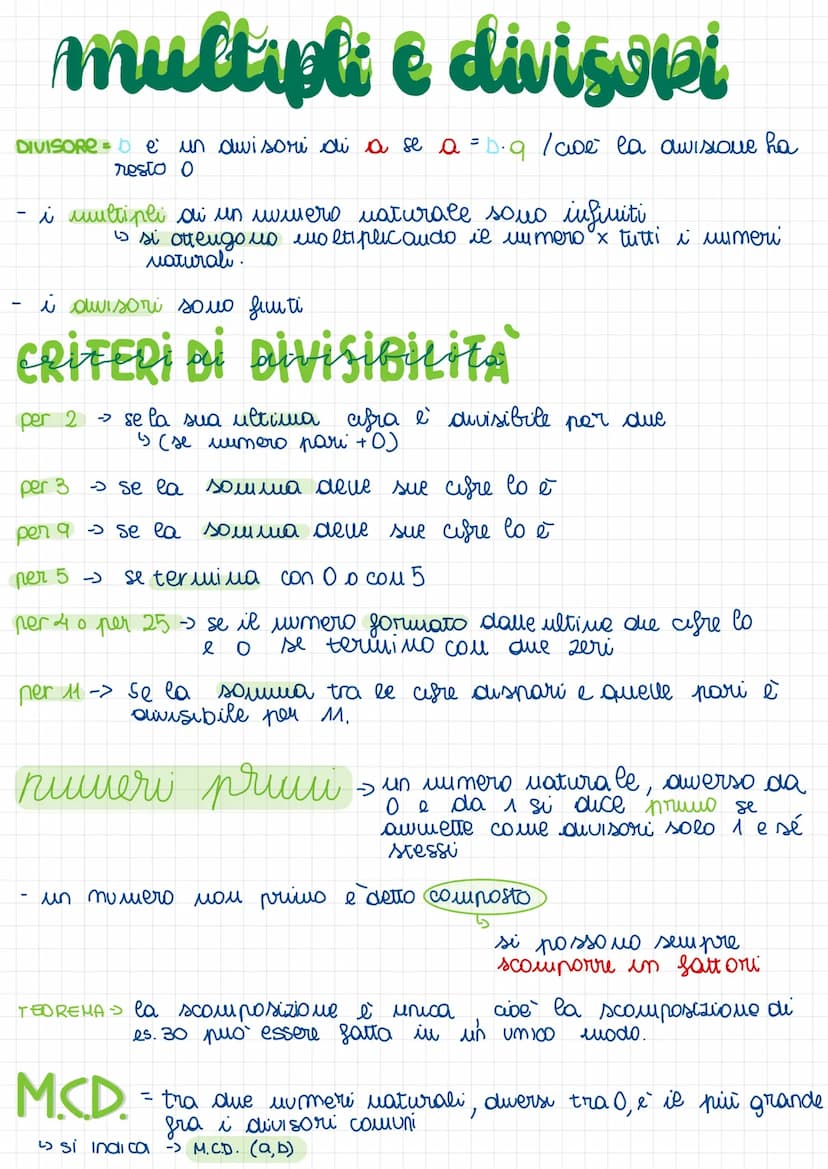 multipli e divisori
DIVISORE = b è un divisori di a se a = b·q / cioè la divisione ha
resto 0
- i multipli di un numero naturale sono infiniti
↳ si ottengono moltiplicando il numero x tutti i numeri
naturali.
- i divisori sono finiti
CRITERI DI DIVISIBILITÀ
criteri di divisibilità
per 2 → se la sua ultima cifra è divisibile per due
↳ (se numero pari + 0)
per 3 → se la somma delle sue cifre lo è
per 9 → se la somma delle sue cifre lo è
per 5 → se termina con 0 o con 5
per 4 o per 25 → se il numero formato dalle ultime due cifre lo
è o se termino con due zeri
per 11 → se la somma tra le cifre dispari e quelle pari è
divisibile per 11.
numeri primi → un numero naturale, diverso da
0 e da 1 si dice primo se
ammette come divisori solo 1 e sé
stessi
- un numero non primo è detto composto
↳
si possono sempre
scomporre in fattori
TEOREMA → la scomposizione è unica, cioè la scomposizione di
es. 30 può essere fatta in un unico modo.
M.C.D. = tra due numeri naturali, diversi tra 0, è il più grande
fra i divisori comuni
↳ si indica → M.C.D. (a,b)